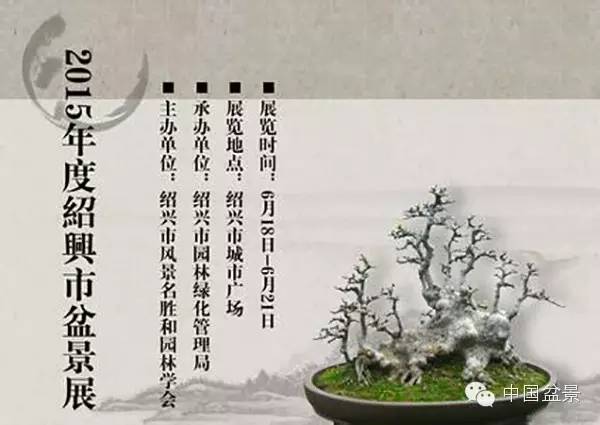 2015年度紹興市盆景展
■ 主办单位：绍兴市风景名胜和园林学会
■ 承办单位：绍兴市园林绿化管理局
■ 展览地点：绍兴市城市广场
■ 展览时间：6月18日-6月21日
中国盆景